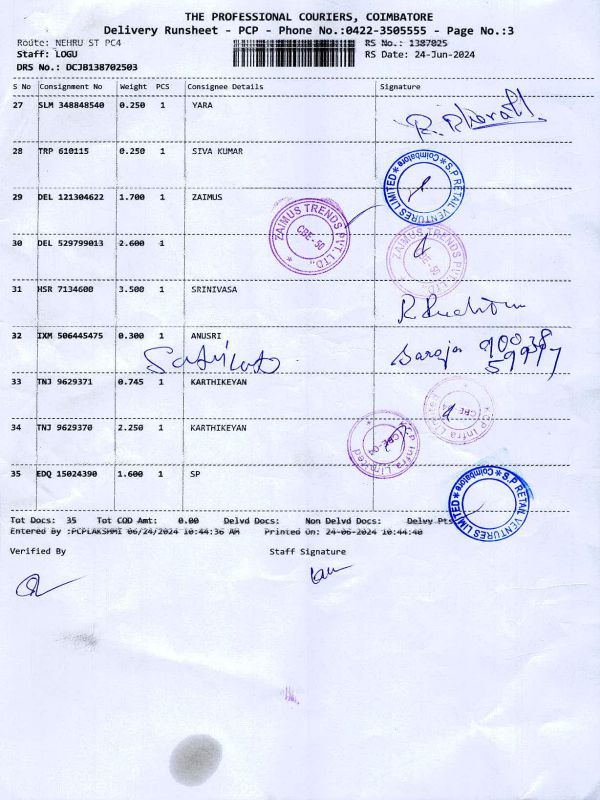 THE PROFESSIONAL COURIERS, COIMBATORE
Delivery Runsheet - PCP - Phone No.:0422-3505555 - Page No.:3
Route: NEHRU ST PC4 RS No.: 1387025
Staff: LOGU RS Date: 24-Jun-2024
DRS No.: DCJB138702503
S No Consignment No Weight PCS Consignee Details Signature
27 SLM 348848540 0.250 1 YARA
28 TRP 610115 0.250 1 SIVA KUMAR
S.P RETAIL VENTURES LIMITED * Coimbatore *
29 DEL 121304622 1.700 1 ZAIMUS
ZAIMUS TRENDS PVT. LTD. * CBE-50
30 DEL 529799013 2.600 1
ZAIMUS TRENDS PVT. LTD. * CBE-50
31 HSR 7134600 3.500 1 SRINIVASA
32 IXM 506445475 0.300 1 ANUSRI
Saroja 90038
59977
33 TNJ 9629371 0.745 1 KARTHIKEYAN
34 TNJ 9629370 2.250 1 KARTHIKEYAN
35 EDQ 15024390 1.600 1 SP
S.P RETAIL VENTURES LIMITED * Coimbatore *
Tot Docs: 35 Tot COD Amt: 0.00 Delvd Docs: Non Delvd Docs: Delvy Pts
Entered By :PCPLAKSHMI 06/24/2024 10:44:36 AM Printed On: 24-06-2024 10:44:40
Verified By Staff Signature